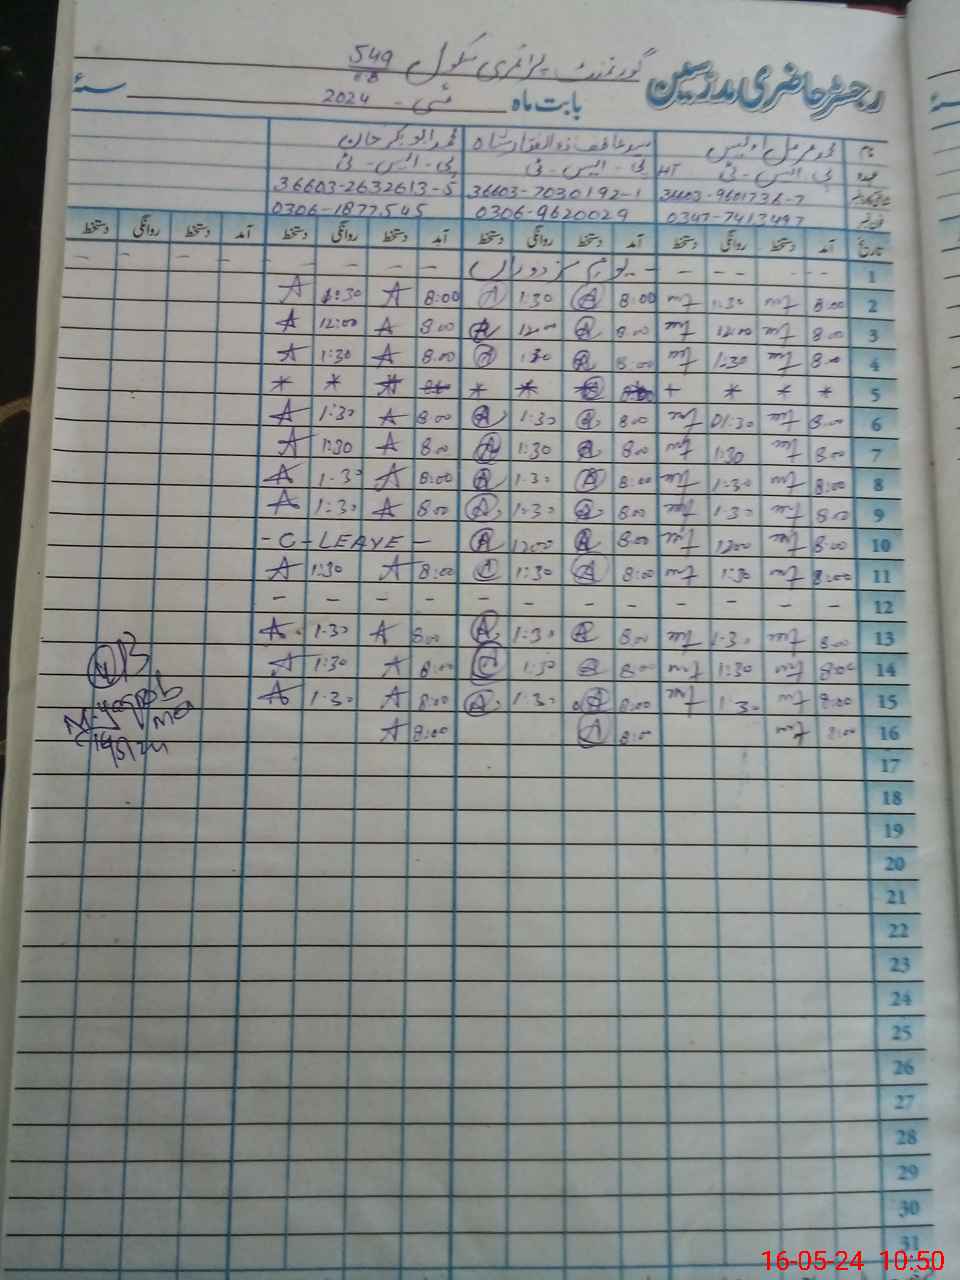 گورنمنٹ پرائمری سکول 549
E.B
رجسٹر حاضری مدرسین
بابت ماہ مئی - 2024 سنہ
نام محمد مزمل اویس سید عاطف ذوالفقار شاہ محمد ابوبکر خان
عہدہ پی - ایس - ٹی HT پی - ایس - ٹی پی - ایس - ٹی
36603-9601736-7 36603-7030192-1 36603-2632613-5
فون نمبر 0347-7413497 0306-9620029 0306-1877545
تاریخ آمد دستخط روانگی دستخط آمد دستخط روانگی دستخط آمد دستخط روانگی دستخط آمد دستخط روانگی دستخط
1 - - - - - یوم مزدوراں - - - - - - - -
2 8:00 1:30 8:00 A 1:30 A 8:00 A 1:30 A
3 8:00 12:00 8:00 A 12:00 A 8:00 A 12:00 A
4 8:00 1:30 8:00 A 1:30 A 8:00 A 1:30 A
5 * * * + * * * *
6 8:00 01:30 8:00 A 1:30 A 8:00 A 1:30 A
7 8:00 1:30 8:00 A 1:30 A 8:00 A 1:30 A
8 8:00 1:30 8:00 A 1:30 A 8:00 A 1:30 A
9 8:00 1:30 8:00 A 1:30 A 8:00 A 1:30 A
10 8:00 1200 8:00 A 1200 A - C - LEAVE -
11 8:00 1:30 8:00 A 1:30 A 8:00 A 1:30 A
12 - - - - - - - - - - - -
13 8:00 1:30 8:00 A 1:30 A 8:00 A 1:30 A
14 8:00 1:30 8:00 A 1:30 A 8:00 A 1:30 A
15 8:00 1:30 8:00 A 1:30 A 8:00 A 1:30 A
16 8:00 8:00 A 8:00 A
17
18
19
20
21
22
23
24
25
26
27
28
29
30
31
16-05-24 10:50